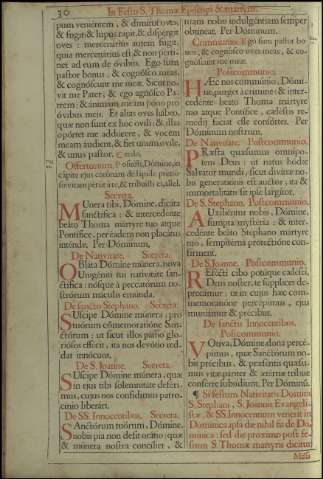 30
In Festo S. Thomæ Episcopi & martyris.
pum venientem, & dimittit oves,
& fugit: & lupus rapit, & dispergit
oves: mercenarius autem fugit,
quia mercenarius est & non perti-
net ad eum de ovibus. Ego sum
pastor bonus: & cognosco meas,
& cognoscunt me meæ. Sicut no-
vit me Pater, & ego agnosco Pa-
trem: & animam meam pono pro
ovibus meis. Et alias oves habeo,
quæ non sunt ex hoc ovili: & illas
oportet me adducere, & vocem
meam audient, & fiet unum ovile,
& unus pastor. Credo.
Offertorium. Posuisti, Dómine, in
cápite ejus corónam de lápide pretió-
Secreta.
Múnera tibi, Dómine, dicáta
sanctífica: & intercedénte
beáto Thoma mártyre tuo atque
Pontífice, per éadem nos placátus
inténde. Per Dóminum.
De Nativitate. Secreta.
Obláta Dómine múnera, nova
Unigéniti tui nativitáte san-
ctífica: nosque à peccatórum no-
strórum máculis emúnda.
De sancto Stephano. Secreta.
Súscipe Dómine múnera, pro
tuórum commemoratióne San-
ctórum: ut sicut illos pássio glo-
riósos effécit, ita nos devótio red-
dat innócuos.
De S. Joanne. Secreta.
Súscipe Dómine múnera, quæ
in ejus tibi solemnitáte deféri-
mus, cujus nos confídimus patro-
cínio liberári.
De SS. Innocentibus. Secreta.
Sanctórum tuórum, Dómine,
nobis pia non desit orátio: quæ
& múnera nostra concíliet, &
tuam nobis indulgéntiam semper
obtíneat. Per Dóminum.
Communio. Ego sum pastor bo-
nus, & cognósco oves meas, & co-
gnóscunt me meæ.
Postcommunio.
Hæc nos commúnio, Dómi-
ne, purget à crímine: & inter-
cedénte beáto Thoma mártyre
tuo atque Pontífice, cæléstis re-
médii fáciat esse consórtes. Per
Dóminum nostrum.
De Nativitate. Postcommunio.
Præsta quǽsumus omnípo-
tens Deus: ut natus hódie
Salvátor mundi, sicut divínæ no-
bis generatiónis est auctor, ita &
immortalitátis sit ipse largítor.
De S. Stephano. Postcommunio.
Auxiliéntur nobis, Dómine,
sumpta mystéria: & inter-
cedénte beáto Stéphano mártyre
tuo, sempitérna protectióne con-
fírment.
De S. Joanne. Postcommunio.
Refécti cibo potúque cælésti,
Deus noster, te súpplices de-
precámur: ut in cujus hæc com-
memoratióne percépimus, ejus
muniámur & précibus.
De sanctis Innocentibus.
Postcommunio.
Votíva, Dómine, dona percé-
pimus, quæ Sanctórum no-
bis précibus, & præséntis quǽsu-
mus vitæ páriter & ætérnæ tríbue
conférre subsídium. Per Dóminum.
¶ Si festum Nativitatis Domini,
S. Stephani, S. Joannis Evangeli-
stæ, & SS. Innocentium venerit in
Dominica, ipsa die nihil fit de Do-
minica: sed die proximo post fe-
stum S. Thomæ martyris dicitur
Missa